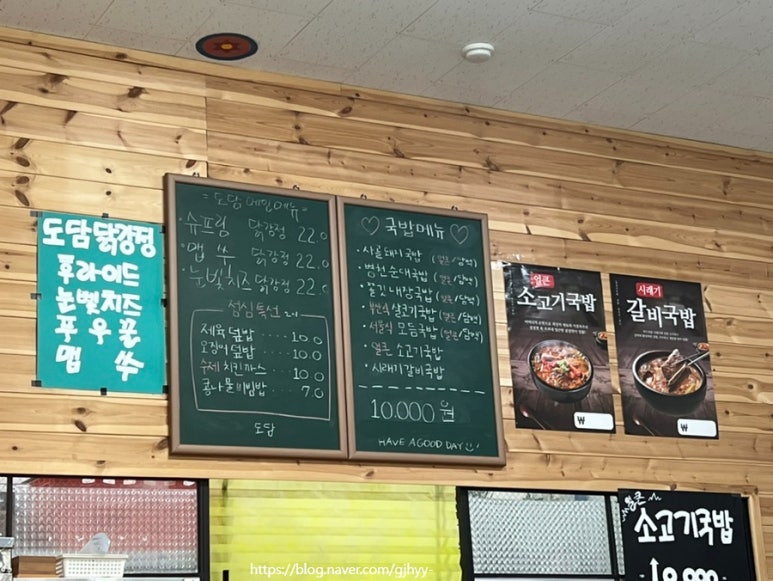 도담닭강정
후라이드
눈빛치즈
맵 쑤
도담 메인메뉴
슈프림 닭강정 22.0
맵 쑤 닭강정 22.0
눈빛치즈 닭강정 22.0
점심특선
제육덮밥 ···· 10.0
오징어덮밥 ···· 10.0
수제치킨까스 ···· 10.0
콩나물비빔밥 ···· 7.0
도담
♡ 국밥메뉴 ♡
· 사골돼지국밥 (얼큰/담백)
· 병천순대국밥 (얼큰/담백)
· 쫄깃내장국밥 (얼큰/담백)
· 살코기국밥 (얼큰/담백)
· 모듬국밥 (얼큰/담백)
· 얼큰 소고기국밥
· 시래기갈비국밥
10.000 원
HAVE A GOOD DAY
얼큰
소고기국밥
₩
시래기
갈비국밥
₩
얼큰
소고기국밥
https://blog.naver.com/gjhyy-